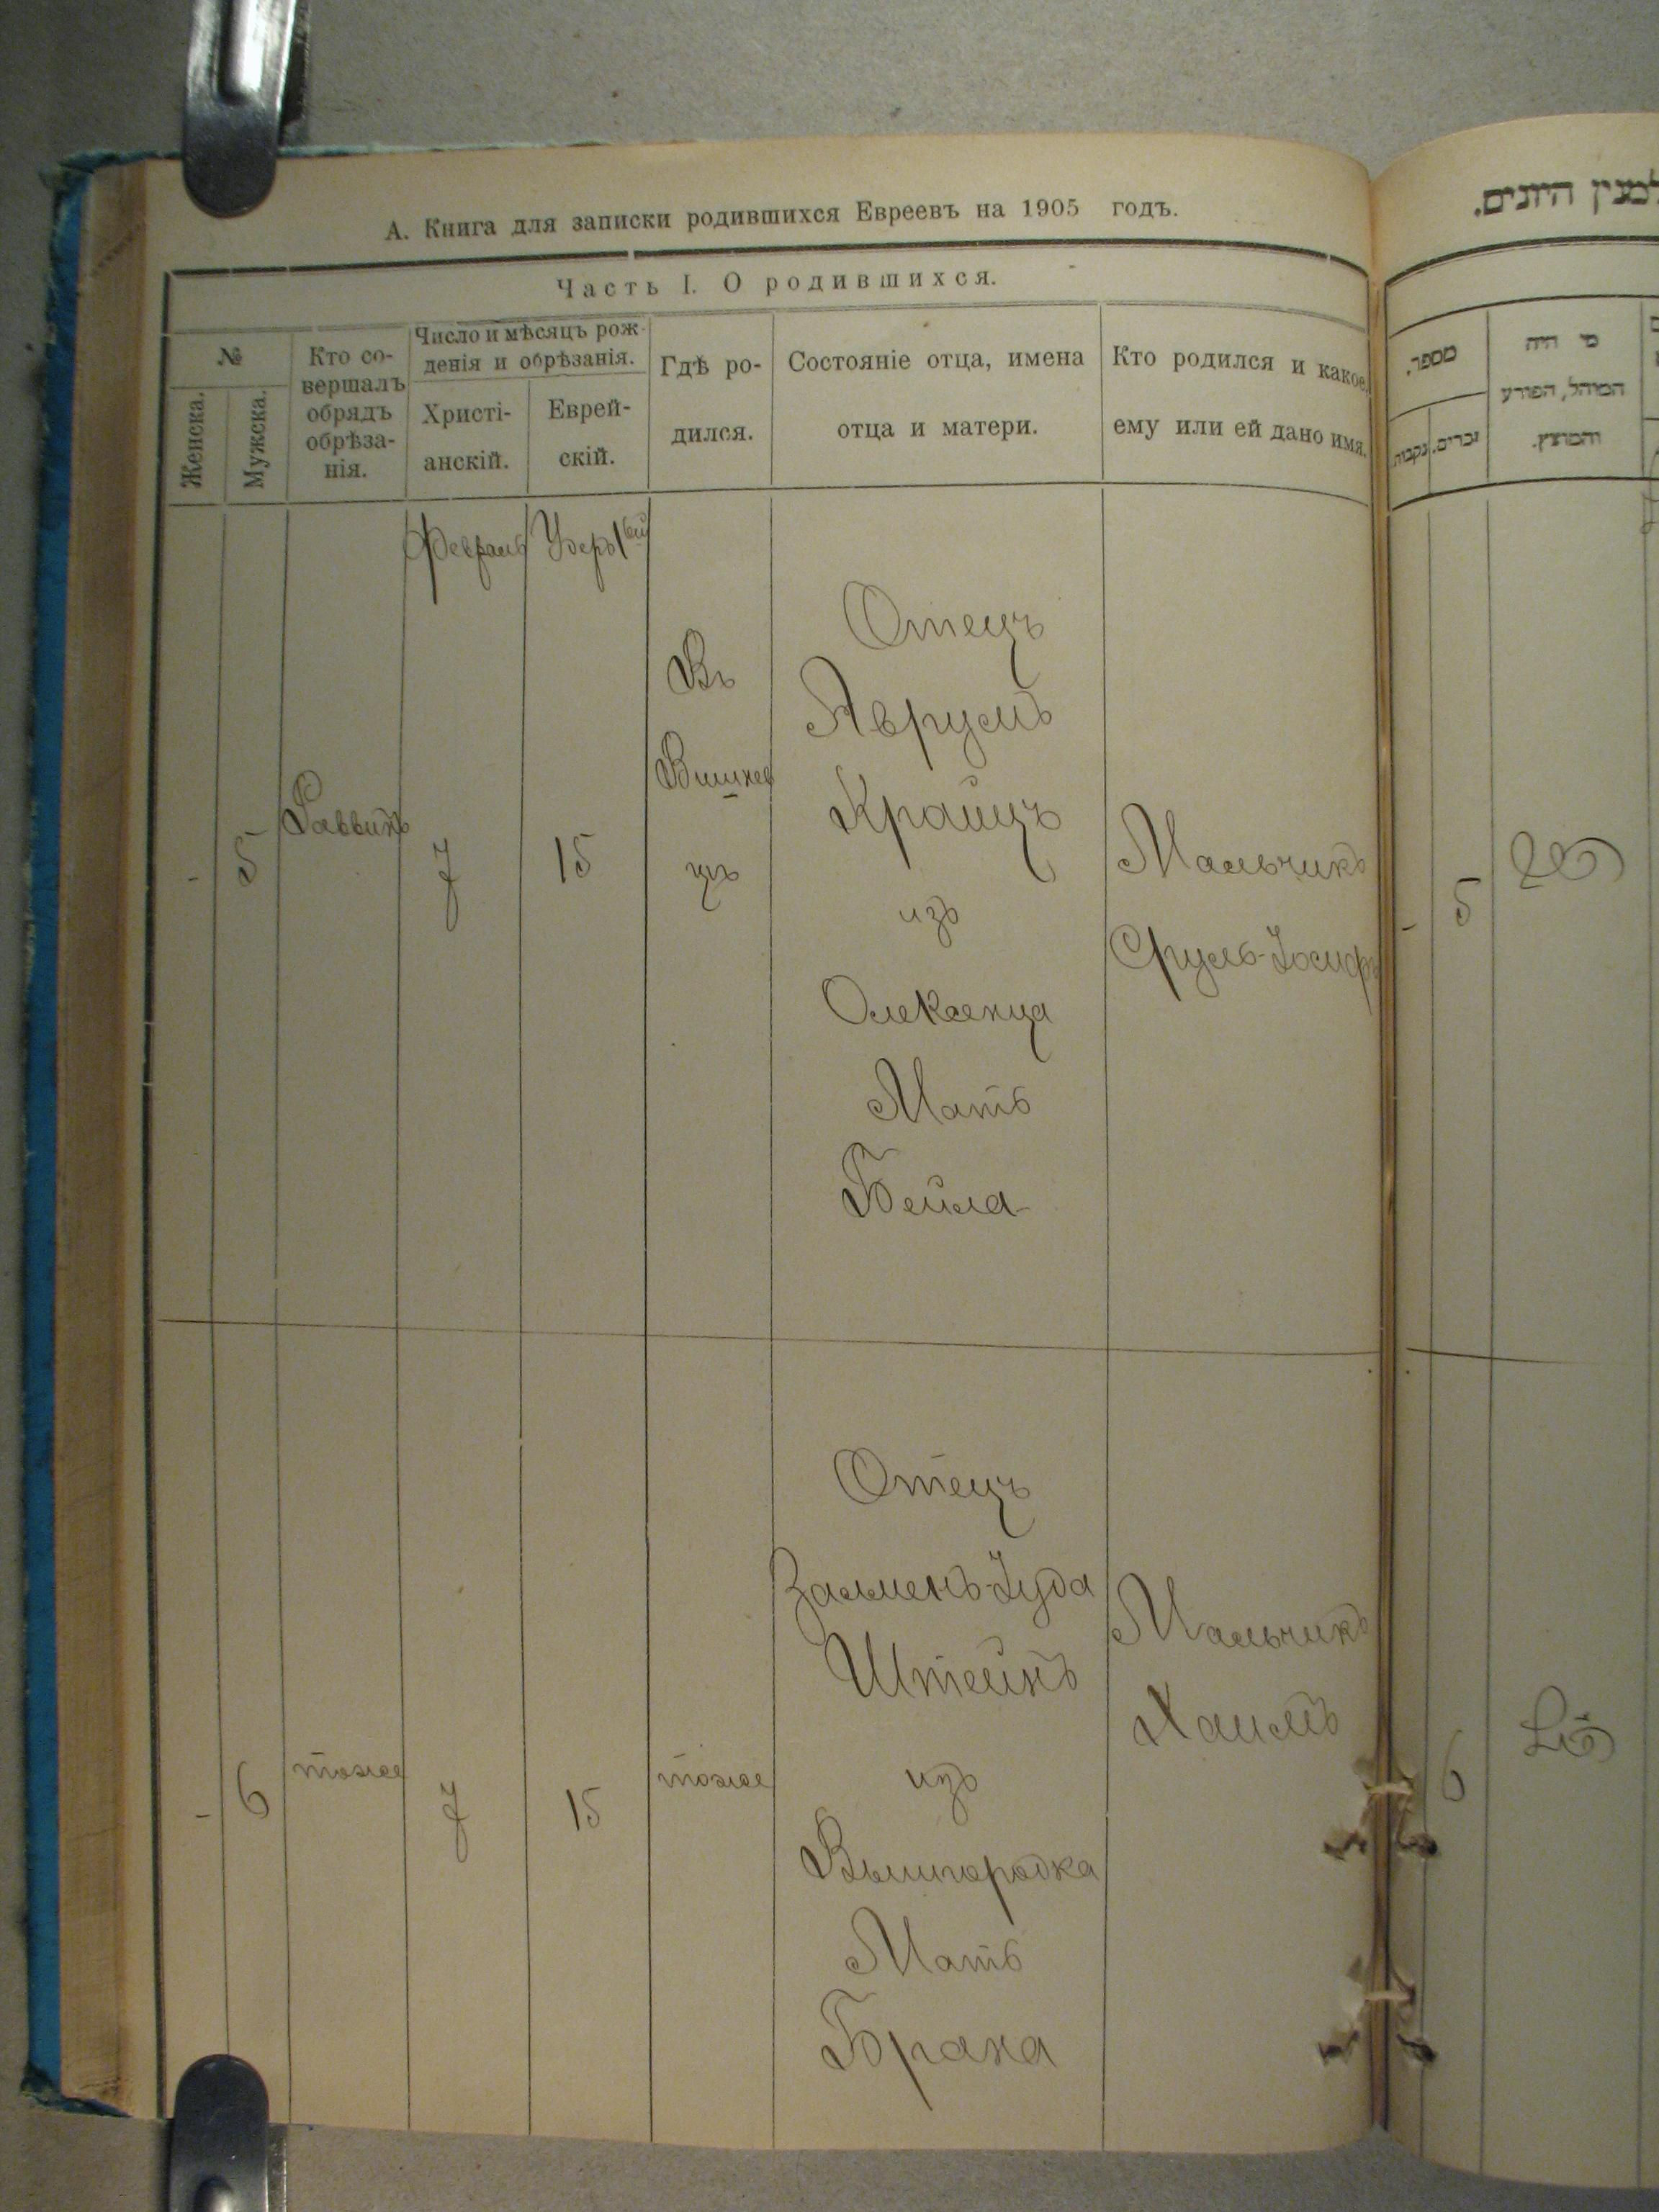 А. Книга для записки родившихся Евреевъ на 1905 годъ.
Часть I. О родившихся.
№
Женска.
Мужска.
Кто со-
вершалъ
обрядъ
обрѣза-
нія.
Число и мѣсяцъ рож-
денія и обрѣзанія.
Христі-
анскій.
Еврей-
скій.
Гдѣ ро-
дился.
Состояніе отца, имена
отца и матери.
Кто родился и какое
ему или ей дано имя.
Февраль
-
5
Раввинъ
7
15
Въ
Вишнев
цѣ
Отецъ
Аврумъ
Крайцъ
изъ
Олексенца
Мать
Бейла
Мальчикъ
Сруль-Іосифъ
-
6
тоже
7
15
тоже
Отецъ
Залменъ-Іуда
Штейнъ
изъ
Вышгородка
Мать
Браха
Мальчикъ
Хаимъ
היונים.
מספר.
נקבות.
זכרים.
מי היה
המוהל, הפורע
והמוצץ.
-
5
6